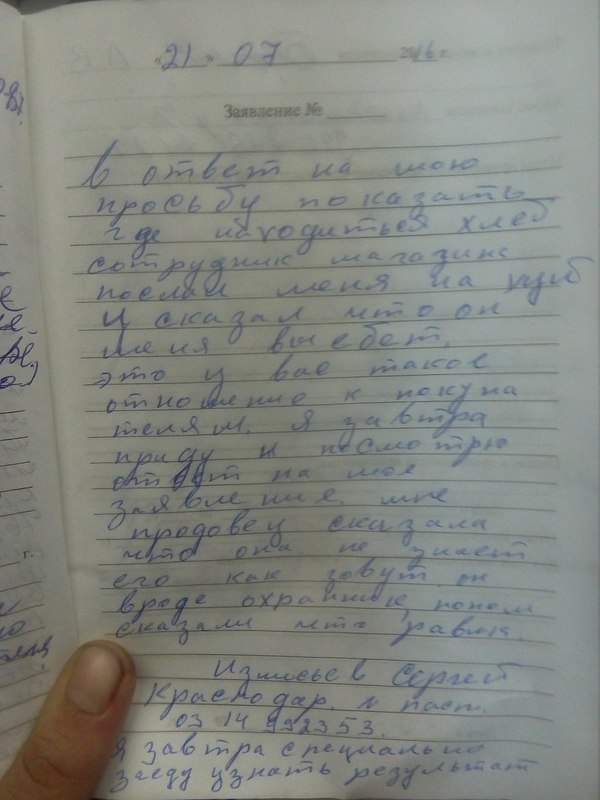 «21» 07 2016 г.
Заявление №
В ответ на мою
просьбу показать
где находиться хлеб
сотрудник магазина
послал меня на
и сказал что он
меня выебет
это у вас такое
отношение к покупа
телям. Я завтра
приду и посмотрю
ответ на мое
заявление, мне
продовец сказала
что она не знает
его как зовут он
вроде охранник,
сказали что
Сергей
Краснодар. № пасп.
03 14 992353.
Я завтра специально
заеду узнать результат
г.